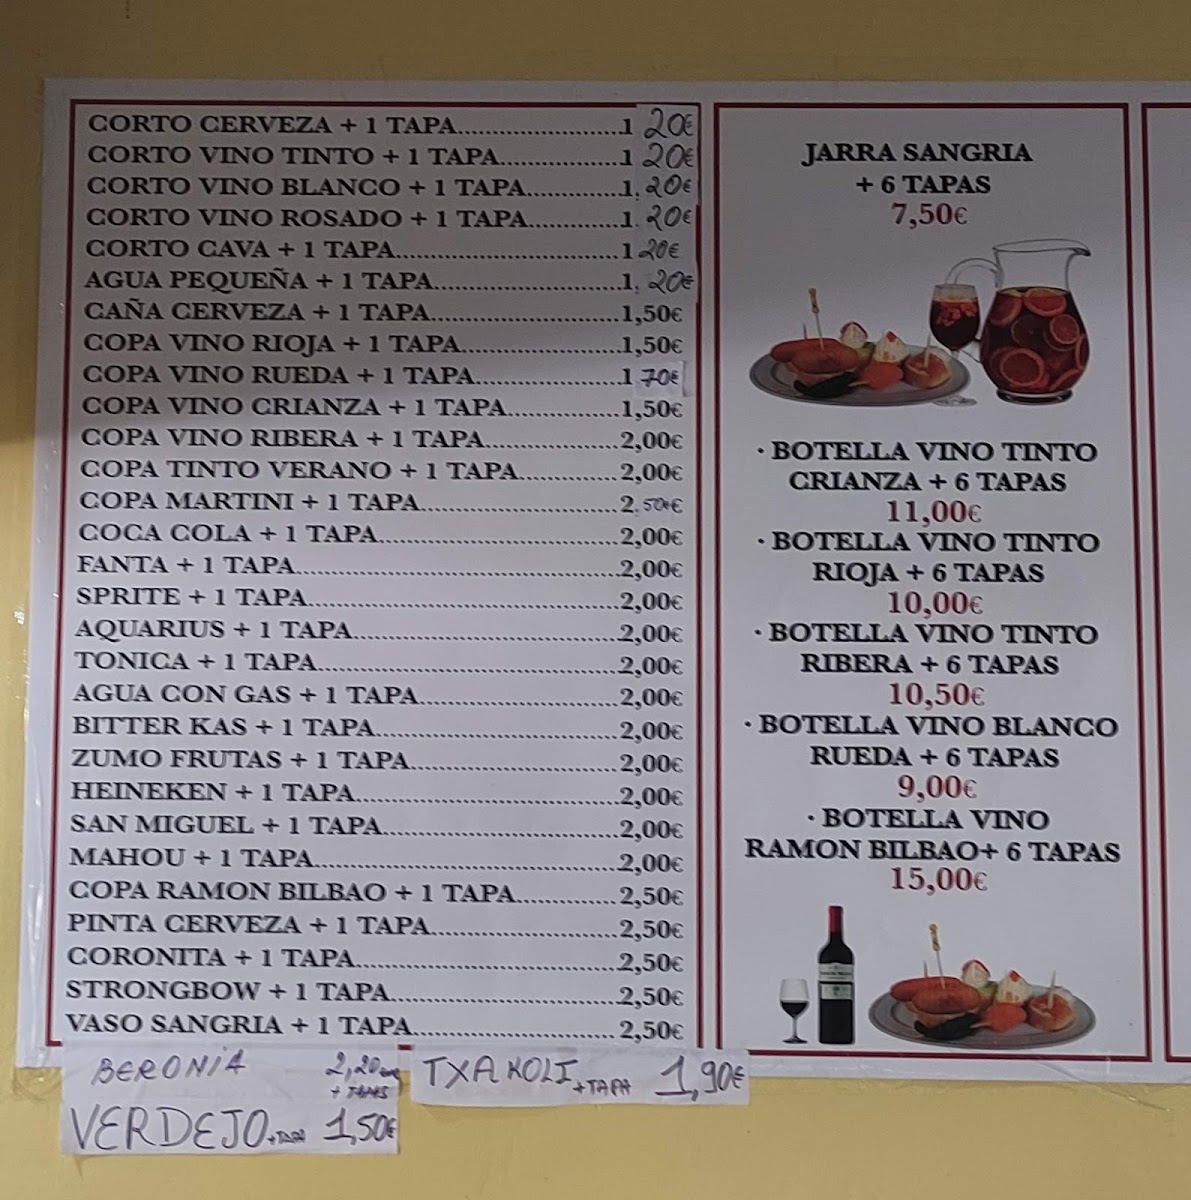 CORTO CERVEZA + 1 TAPA.....................1 20€
CORTO VINO TINTO + 1 TAPA...............1 20€
CORTO VINO BLANCO + 1 TAPA............1. 20€
CORTO VINO ROSADO + 1 TAPA............1 20€
CORTO CAVA + 1 TAPA............................1 20€
AGUA PEQUEÑA + 1 TAPA.......................1. 20€
CAÑA CERVEZA + 1 TAPA.......................1,50€
COPA VINO RIOJA + 1 TAPA...................1,50€
COPA VINO RUEDA + 1 TAPA.................1 70€
COPA VINO CRIANZA + 1 TAPA.............1,50€
COPA VINO RIBERA + 1 TAPA................2,00€
COPA TINTO VERANO + 1 TAPA............2,00€
COPA MARTINI + 1 TAPA.......................2.50€
COCA COLA + 1 TAPA.............................2,00€
FANTA + 1 TAPA.....................................2,00€
SPRITE + 1 TAPA....................................2,00€
AQUARIUS + 1 TAPA..............................2,00€
TONICA + 1 TAPA..................................2,00€
AGUA CON GAS + 1 TAPA.....................2,00€
BITTER KAS + 1 TAPA...........................2,00€
ZUMO FRUTAS + 1 TAPA......................2,00€
HEINEKEN + 1 TAPA.............................2,00€
SAN MIGUEL + 1 TAPA..........................2,00€
MAHOU + 1 TAPA..................................2,00€
COPA RAMON BILBAO + 1 TAPA...........2,50€
PINTA CERVEZA + 1 TAPA....................2,50€
CORONITA + 1 TAPA.............................2,50€
STRONGBOW + 1 TAPA.........................2,50€
VASO SANGRIA + 1 TAPA......................2,50€
BERONIA 2,20
+ TAPAS
VERDEJO + TAPA 1,50€
TXAKOLI + TAPA 1,90€
JARRA SANGRIA
+ 6 TAPAS
7,50€
· BOTELLA VINO TINTO
CRIANZA + 6 TAPAS
11,00€
· BOTELLA VINO TINTO
RIOJA + 6 TAPAS
10,00€
· BOTELLA VINO TINTO
RIBERA + 6 TAPAS
10,50€
· BOTELLA VINO BLANCO
RUEDA + 6 TAPAS
9,00€
· BOTELLA VINO
RAMON BILBAO+ 6 TAPAS
15,00€